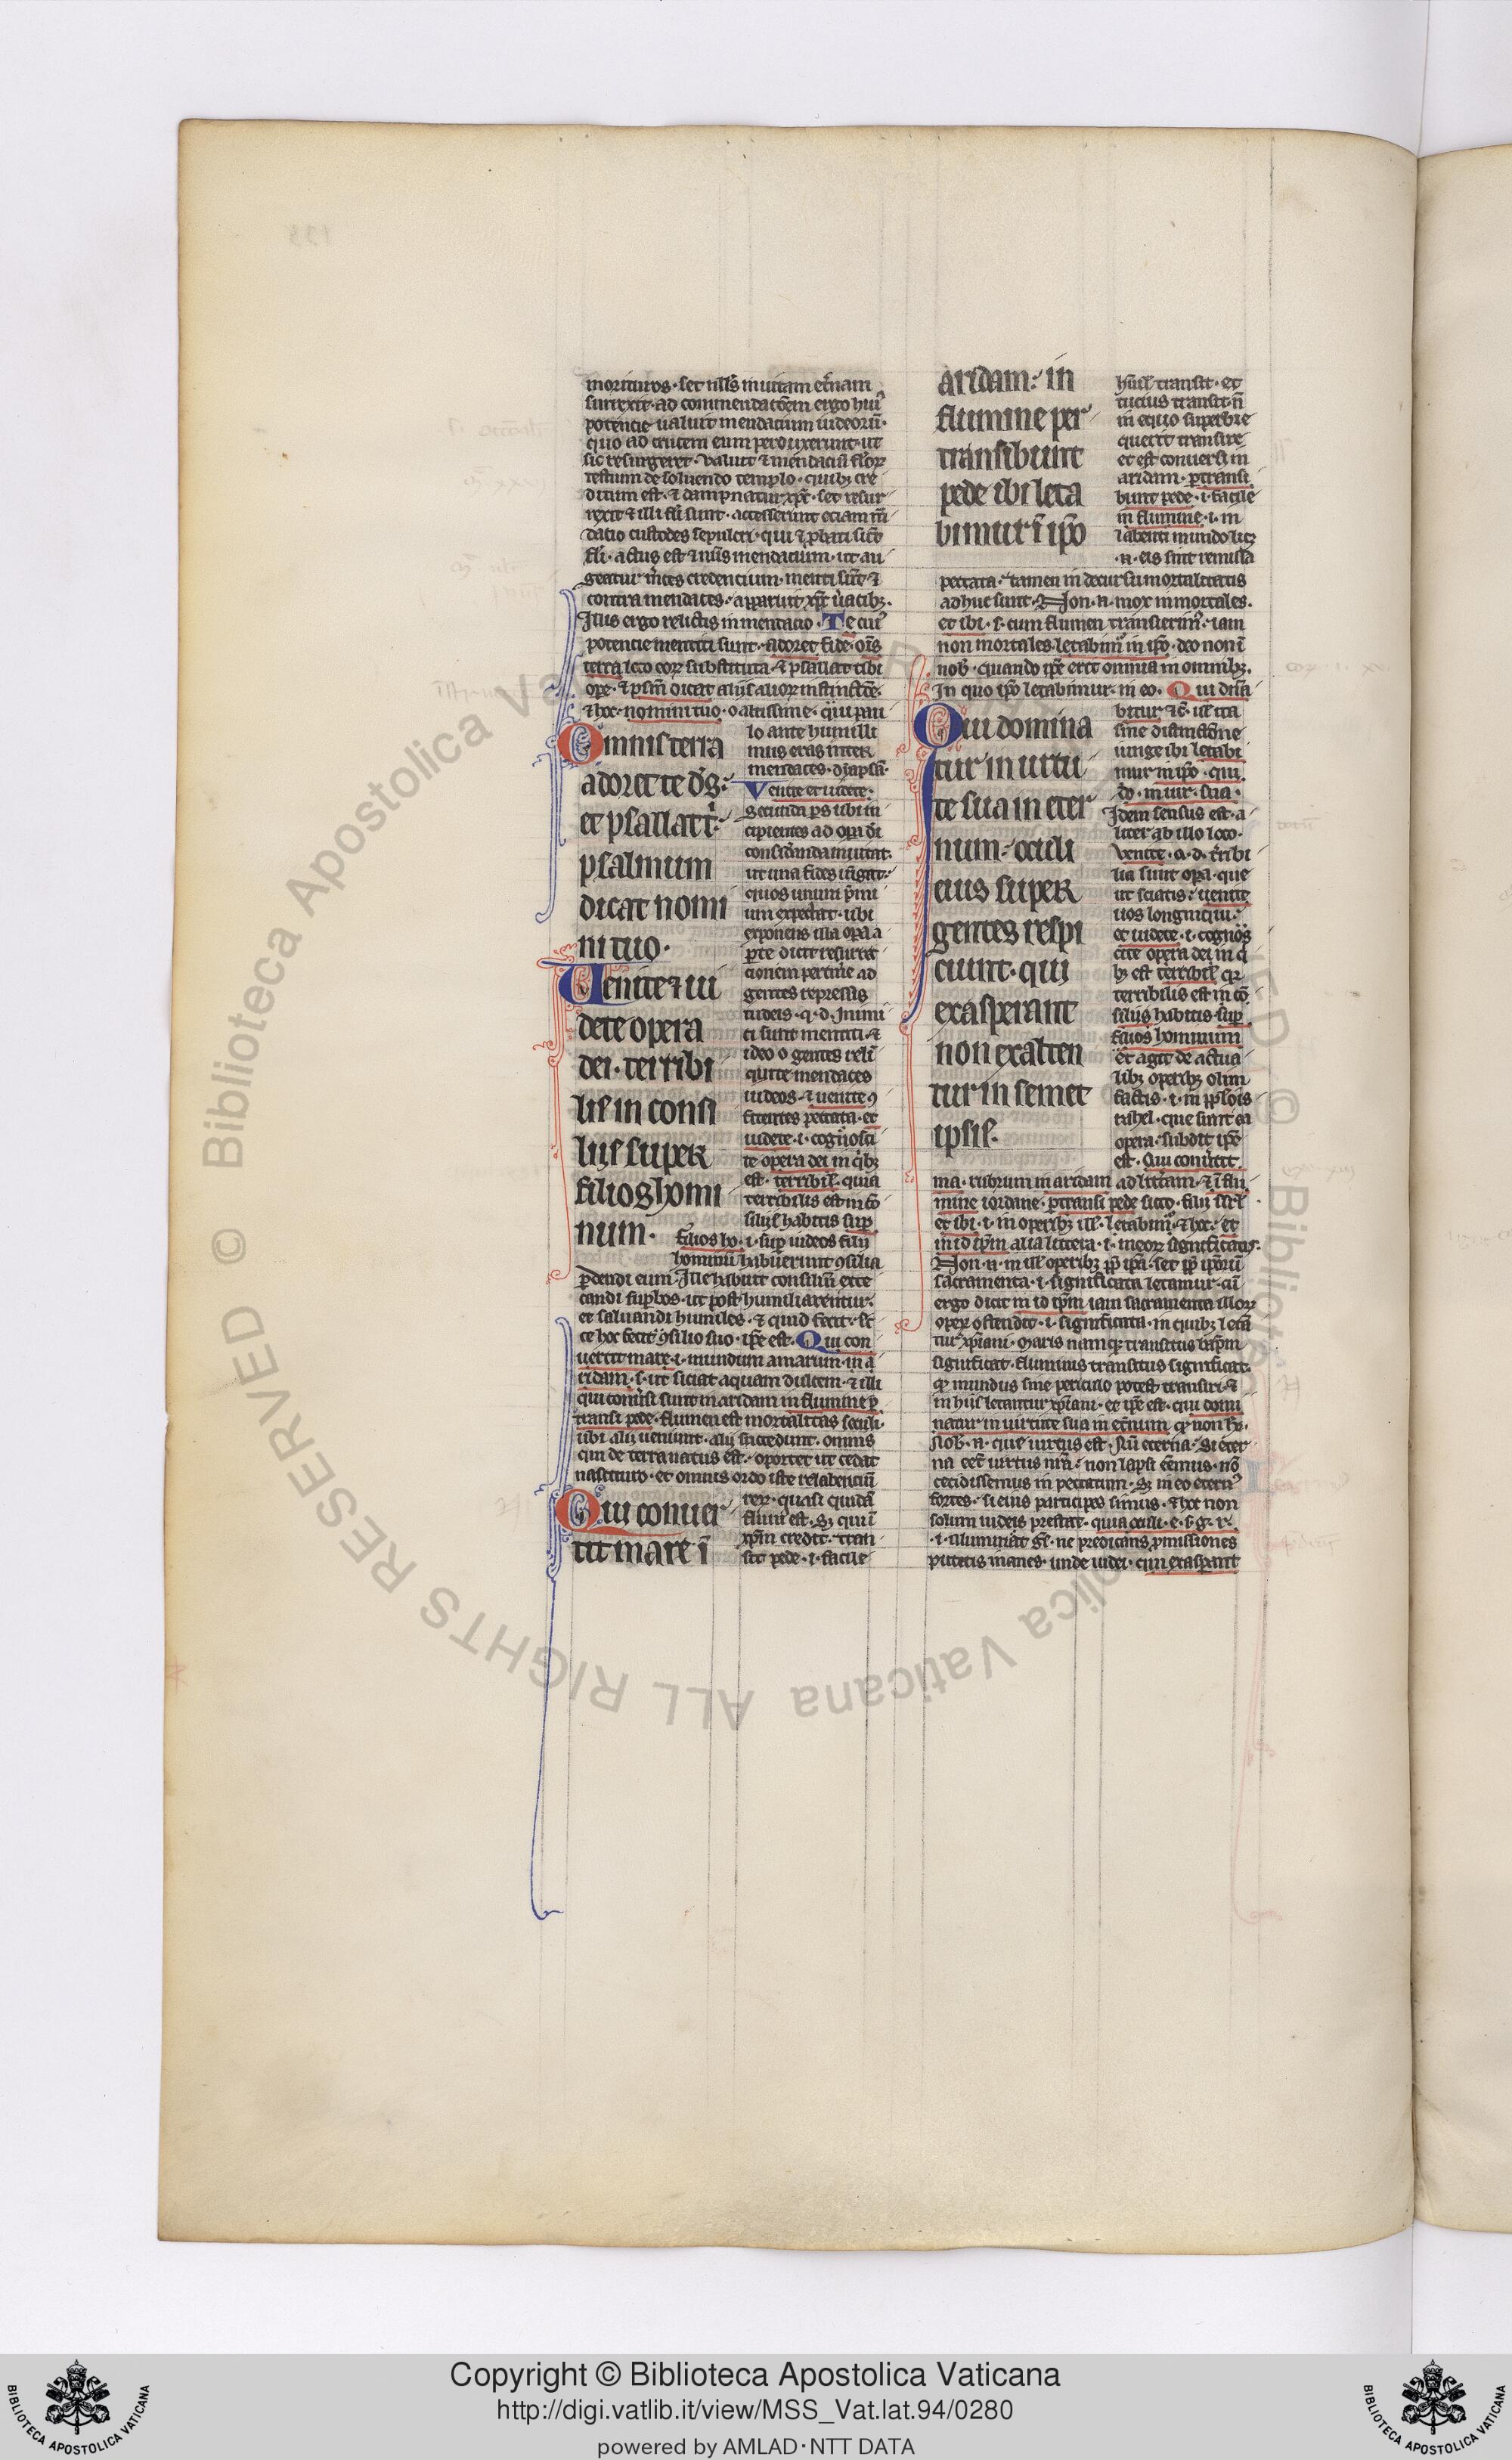 morituros · set illis in uitam et̃nam
surrexit · ad commendatõem ergo hui᷒
potencie ualuit mendacium iudeorũ ·
quo ad crucem eum perduxerunt · ut
sic resurgeret · valuit ⁊ mendaciũ
testium de soluendo templo · quibꝫ cre
ditum est · ⁊ dampnatur xp̃c · set resur
rexit ⁊ illi
dacio custodes sepulcri · qui ⁊
actus est mendacium · ut au
geatur credencium · mentiti sũt ⁊
contra mendaces · apparuit xp̃c
Illis ergo relictis in mendacio · Te cui᷒
potencie mentiti sunt · adoret fide · oı̃s
terra loco eoꝝ substituta · ⁊ psallat tibi
ope · ⁊ dicat alijs alioꝝ
⁊ hoc · nomini tuo · o altissime · qui pau
lo ante humilli
mus eras inter
mendaces ·
Omnis terra
adoret te ds̃ ·
et psallat t ·
psalmum
dicat nomi
ni tuo ·
Venite et uidete ·
Secunda ps ubi in
cipientes ad opa dı̃
inuitat ·
ut una fides
quos unum p̃mi
um expectat · ubi
exponens illa opa a
perte dicit resurrec
cionem ad
gentes repressis
iudeis · q · d · Inimi
ci sunt mentiti · ⁊
ideo o gentes
quite mendaces
iudeos · ⁊ uenite ꝯ
fitentes peccata · et
uidete · i · cognosci
te opera dei in qⁱbꝫ
est · terribil · quia
terribilis est in cõ
silijs habitis sup
Venite ⁊ ui
dete opera
dei · terribi
lis in consi
lijs super
filios homi
num ·
filios ho · i · sup iudeos filij
hominũ habuerunt ꝯsilia
perdendi eum · Ille habuit consiliũ exce
candi supbos · ut post humiliarentur ·
et saluandi humiles · ⁊ quid fecit ·
ce hoc fecit ꝯsilio suo · ip̃e est · Qui con
uertit mare · i · mundum amarum · in a
ridam · s · ut siciat aquam dulcem · ⁊ illi
qui conũsi sunt in aridam in flumine p
transi pede · flumen est mortalitas seculi ·
ubi alij ueniunt · alij succedunt · omnis
qui de terra natus est · oportet ut cedat
nascituro · et omnis ordo iste relabenciũ
rerꝝ · quasi quidã
fluuiꝰ est · sꝫ qui ĩ
xp̃m credit · tran
sit pede · i · facile
Qui conuer
tit mare ĩ
aridam · in
flumine per
transibunt
pede ibi leta
bimur ı̃ ipo
transit · et
tucius transit · ñ
in equo superbie
querit transire
et est conuersi in
aridam · ptransi
bunt pede · i · facile
in flumine · i · in
labenti mundo licꝫ
· n · eis sint remissa
peccata · tamen in decursu mortalitatis
adhuc sunt · Non · n · mox inmortales ·
et ibi · s · cum flumen transierimꝰ · iam
non mortales letabimꝰ in ip̃o · deo non ĩ
nob · quando ip̃e erit omnia in omnibꝫ ·
In quo ip̃o letabimur · in eo · Qui dñã
bitur ⁊c̃ · uel ita
sine distinctõne
iunge ibi letabi
mur in ip̃o · qui
do · in uir · sua ·
Idem sensus est · a
liter ab illo loco ·
Venite · q · d · t̃ribi
lia sunt opa · que
ut sciatis · uenite
uos longinqui ·
et uidete · i · cognos
cite opera dei in q
bꝫ est terribil
terribilis est in cõ
silijs habitis · sup
filios hominum
Et agit de actua
libꝫ operibꝫ olim
factis · i · in
rahel · que sunt ea
opera · subdit ip̃e
est · Qui conũtit ·
Qui domina
tur in uirtu
te sua in eter
num · oculi
eius super
gentes respi
ciunt · qui
exasperant
non exalten
tur in semet
ipsis ·
ma · rubrum in aridam ad litt̃am · ⁊ ĩ flu
mine iordane · ptransi pede sicco · filij isrl
et ibi · i · in operibꝫ ill · letabimꝰ · ⁊ hoc · et
in id ip̃m alia littera · i · in eorꝝ significatis ·
Non · n · in ill operibꝫ
sacramenta · i · significata letamur · cũ
ergo dicit in id ip̃m iam sacramenta illorꝝ
operꝝ ostendit · i · significata · in quibꝫ letã
tur xp̃iani · maris namqꝫ transitus bap̃m
significat · fluminis transitus significat ·
mundus sine periculo potest transiri · ⁊
in hijs letantur xp̃iani · et ip̃e est · qui domi
natur in uirtute sua in et̃num ·
Nob · n · que uirtus est · eterna · Si eter
na eet̃ uirtus nr̃a · non lapsi eẽmus · nõ
cecidissemus in peccatum · sꝫ in eo eternꝰ
fortes · si eius participes simus · ⁊ hoc non
solum iudeis prestat · quia oculi · e · s · g · r ·
· i · illuminat · ne predicans pmissiones
putetis inanes · unde iudei · qui exaspant
Copyright © Biblioteca Apostolica Vaticana
http://digi.vatlib.it/view/MSS_Vat.lat.94/0280
powered by AMLAD·NTT DATA
BIBLIOTECA APOSTOLICA VATICANA
BIBLIOTECA APOSTOLICA VATICANA
© Biblioteca Apostolica Vaticana ALL RIGHTS RESERVED